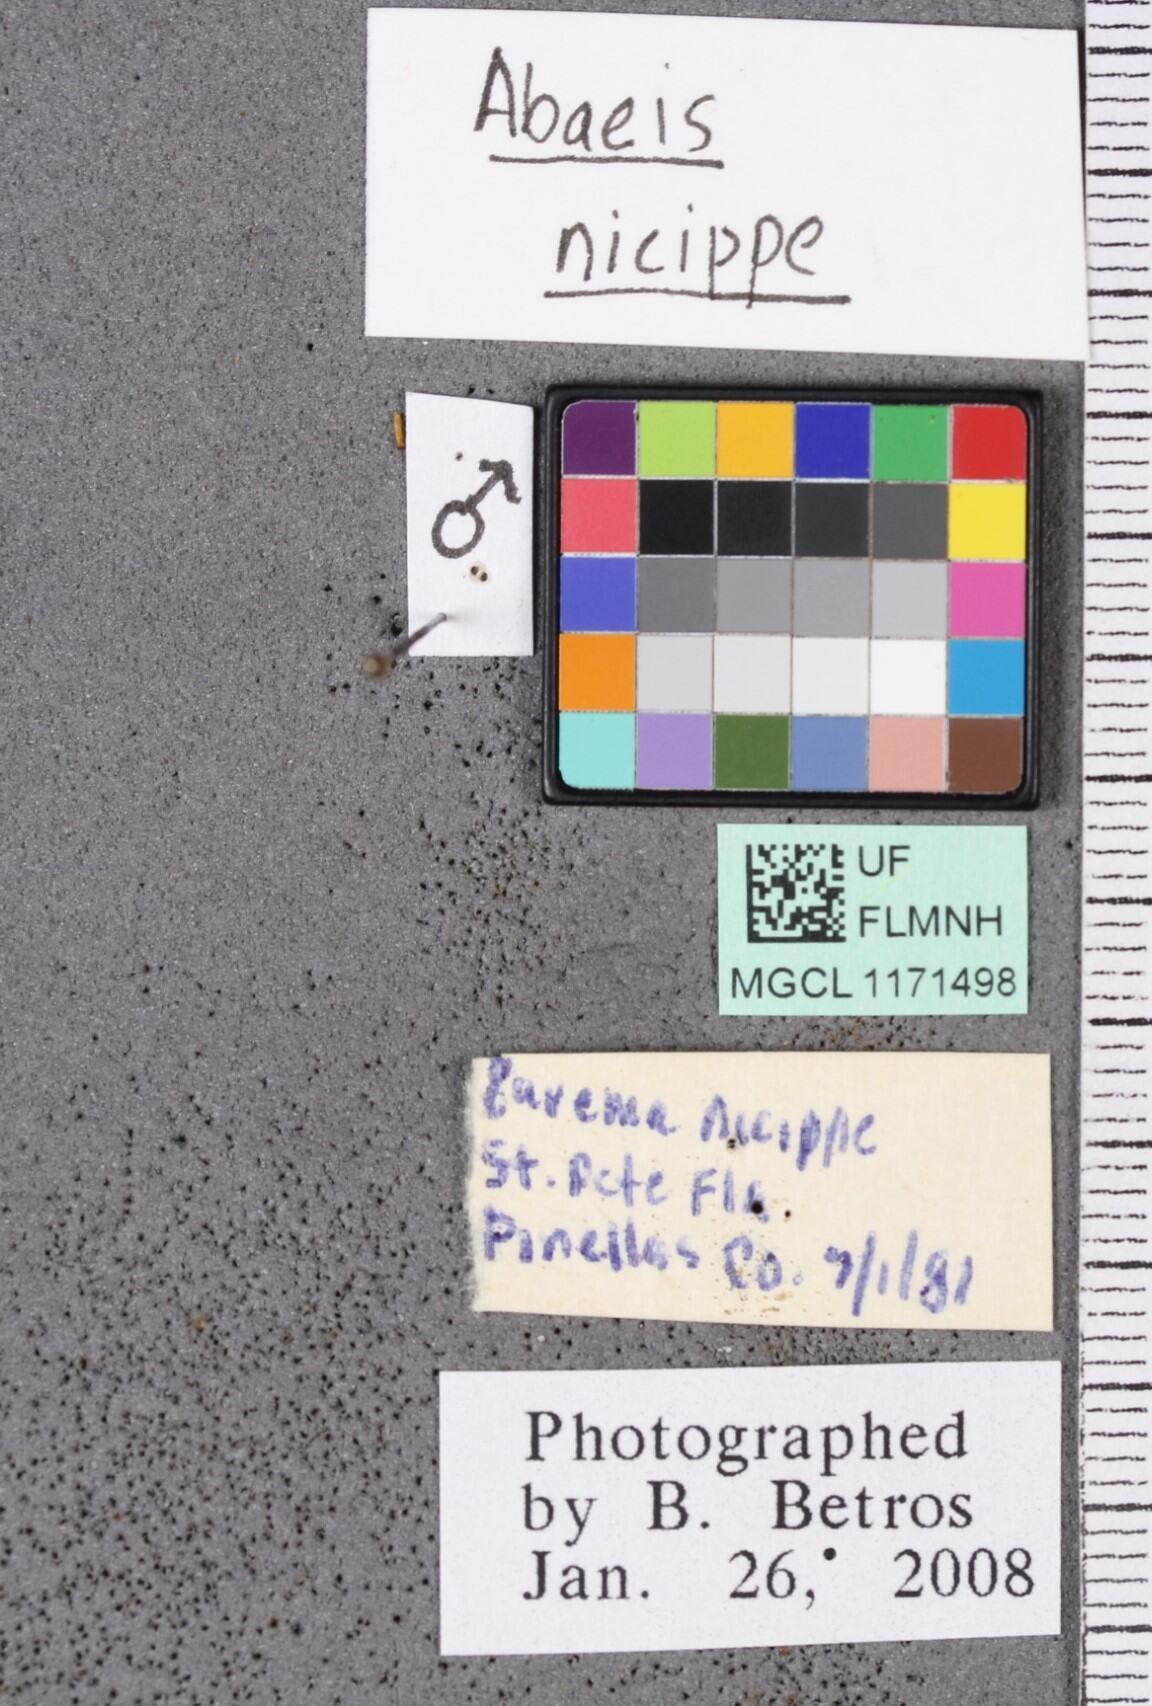 Abaeis
nicippe
♂
UF
FLMNH
MGCL 1171498
Eurema nicippe
St. Pete Fla.
Pinellas Co. 7/1/81
Photographed
by B. Betros
Jan. 26, 2008